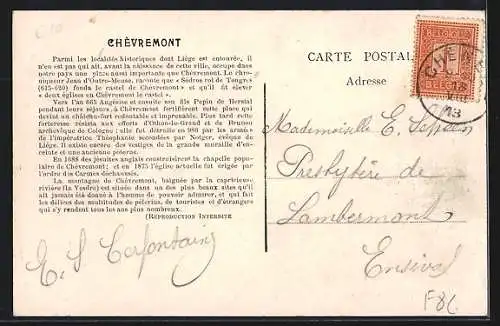 CHÈVREMONT
Parmi les localités historiques dont Liége est entourée, il
n'en est pas qui ait, avant la naissance de cette ville, occupé dans
notre pays une place aussi importante que Chèvremont. Le chro-
niqueur Jean d'Outre-Meuse, raconte que « Sédros roi de Tongres
(615-620) fonda le castel de Chèvremont » et qu'il fit élever
« deux églises en Chèvremont le castel ».
Vers l'an 665 Angésise et ensuite son fils Pepin de Herstal
pendant leurs séjours, à Chèvremont fortifièrent cette place qui
devint un château-fort redoutable et imprenable. Plus tard cette
forteresse résista aux efforts d'Othon-le-Grand et de Brunon
archevêque de Cologne; elle fut détruite en 980 par les armées
de l'impératrice Théophanie secondées par Notger, évêque de
Liége. Il existe encore des vestiges de la grande muraille d'en-
ceinte et une ancienne poterne.
En 1688 des jésuites anglais construisirent la chapelle popu-
laire de Chèvremont; et en 1875 l'église actuelle fut érigée par
l'ordre des Carmes déchaussés.
La montagne de Chèvremont, baignée par la capricieuse
rivière (la Vesdre) est située dans un des plus beaux sites qu'il
ait jamais été donné à l'homme de pouvoir admirer, et qui fait
les délices des multitudes de pèlerins, de touristes et d'étrangers
qui s'y rendent tous les ans plus nombreux.
(REPRODUCTION INTERDITE
CARTE POSTALE
Adresse
Mademoiselle E.
Presbytère de
Lambermont
Ensival
F86